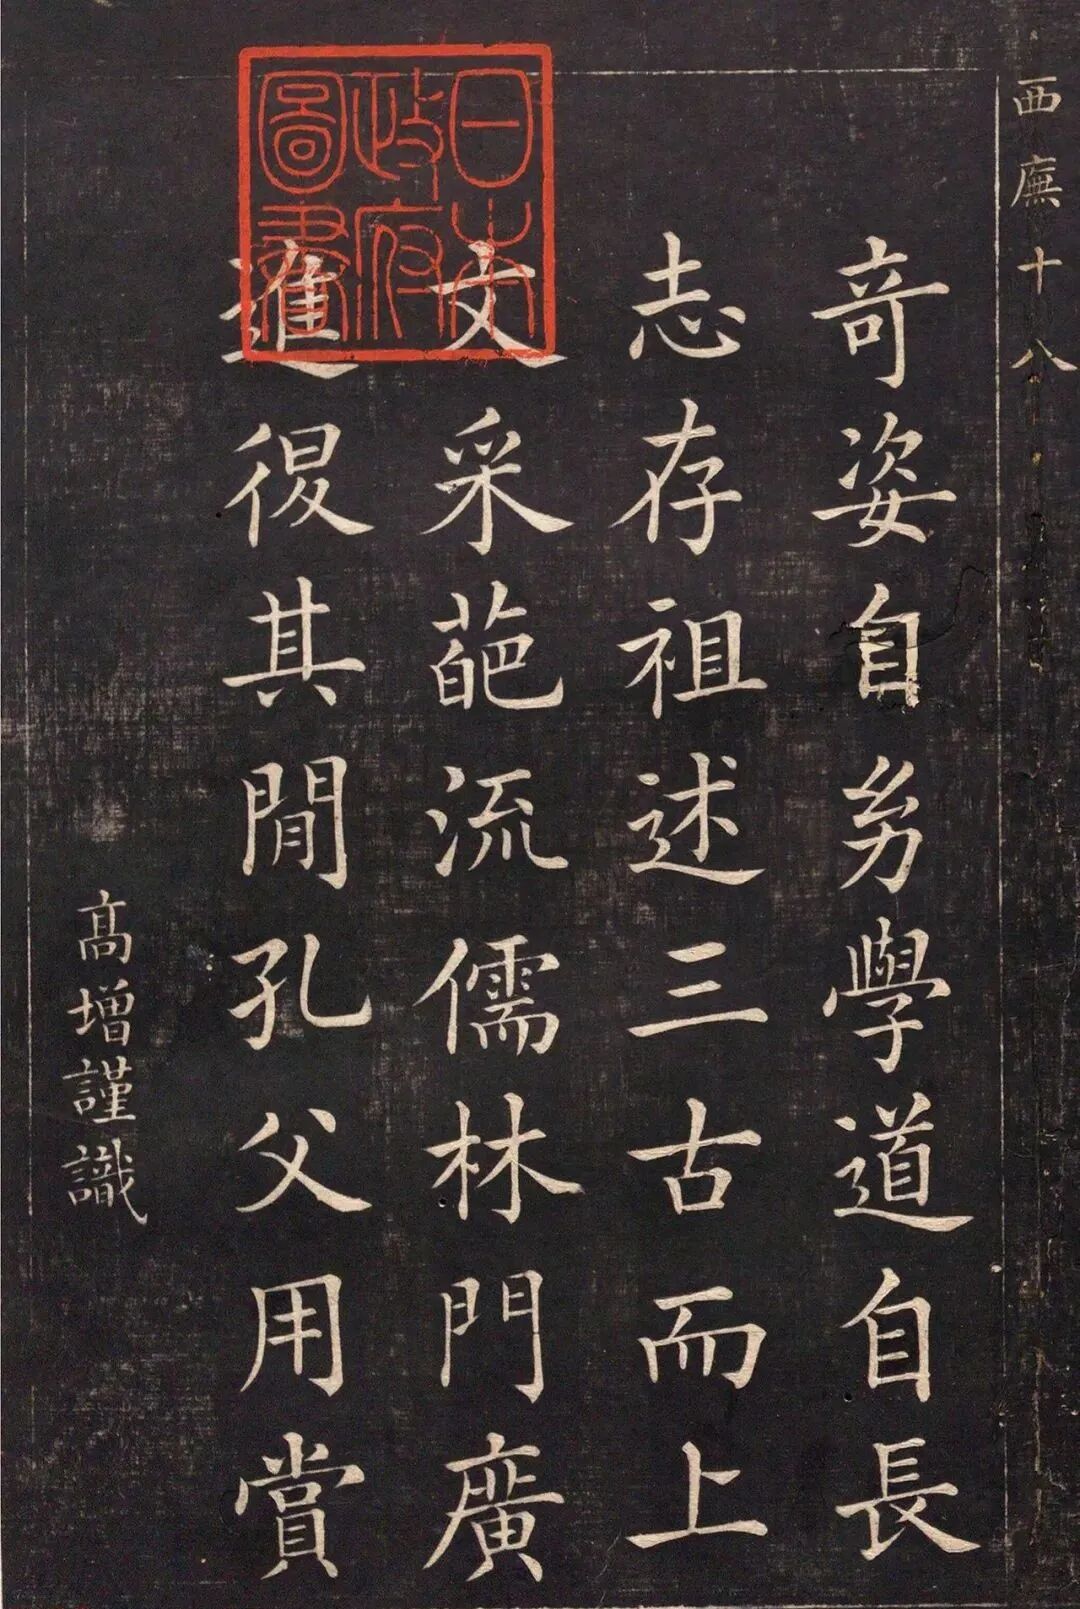 西廡十八
奇姿自㓜學道自長
志存祖述三古而上
文采葩流儒林門廣
進後其閒孔父用賞
高增謹識
日本
政府
圖書